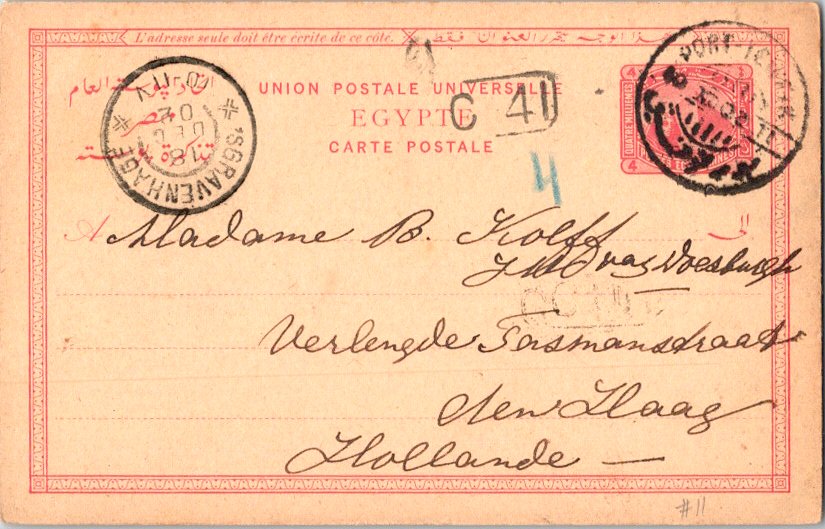 L'adresse seule doit être écrite de ce côté.
UNION POSTALE UNIVERSELLE
EGYPTE
CARTE POSTALE
مصر
'SGRAVENHAGE
C 41
4
4
4
A Madame B. Kolff
الى
Verlengde Tasmanstraat
den Haag
Hollande —
#11